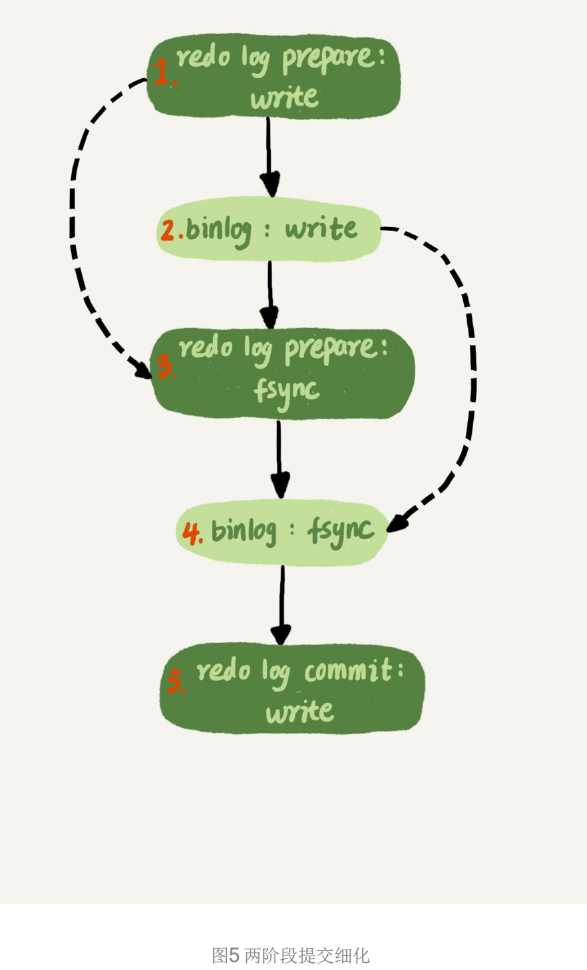 1. redo log prepare:
write
2. binlog : write
3. redo log prepare:
fsync
4. binlog : fsync
5. redo log commit:
write
图5 两阶段提交细化